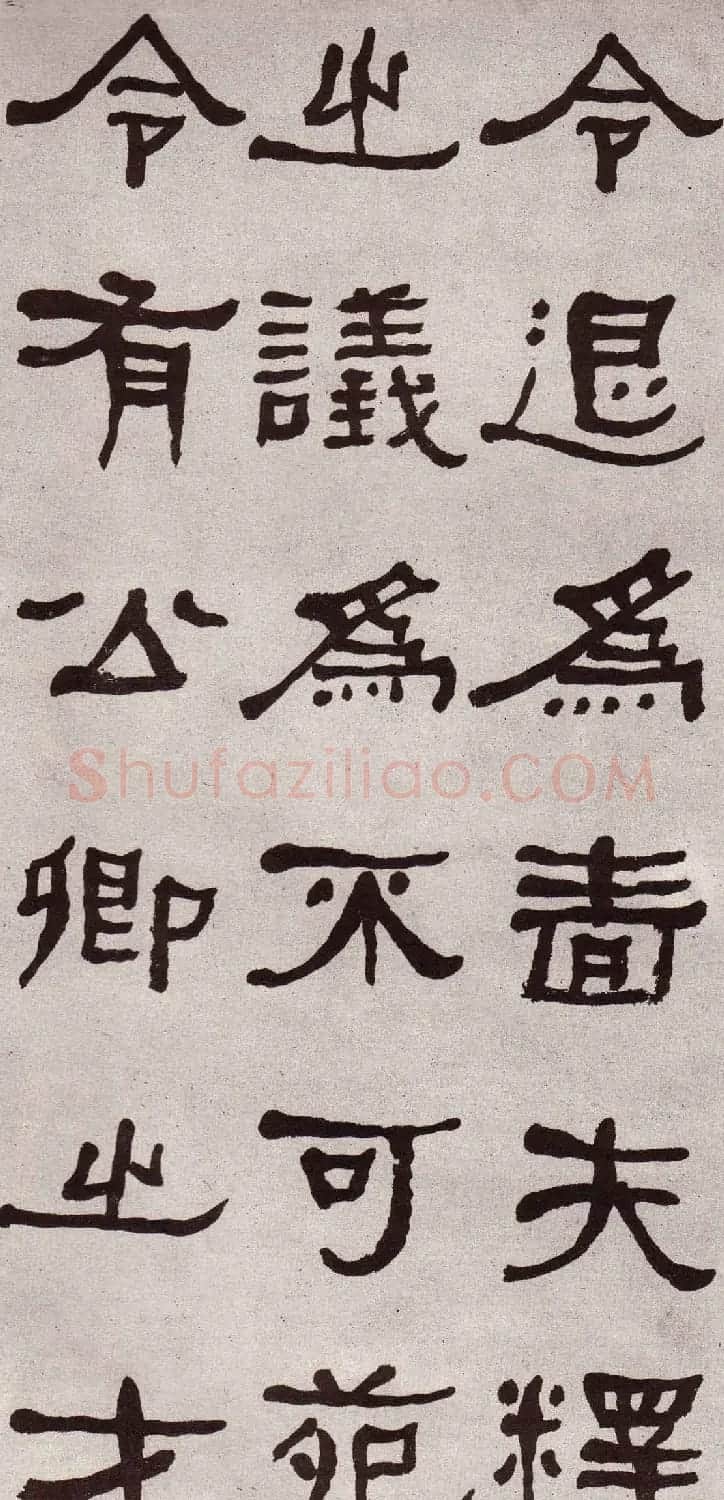 令退爲嗇夫釋
之議爲不可苑
令有公卿之才
Shufaziliao.COM